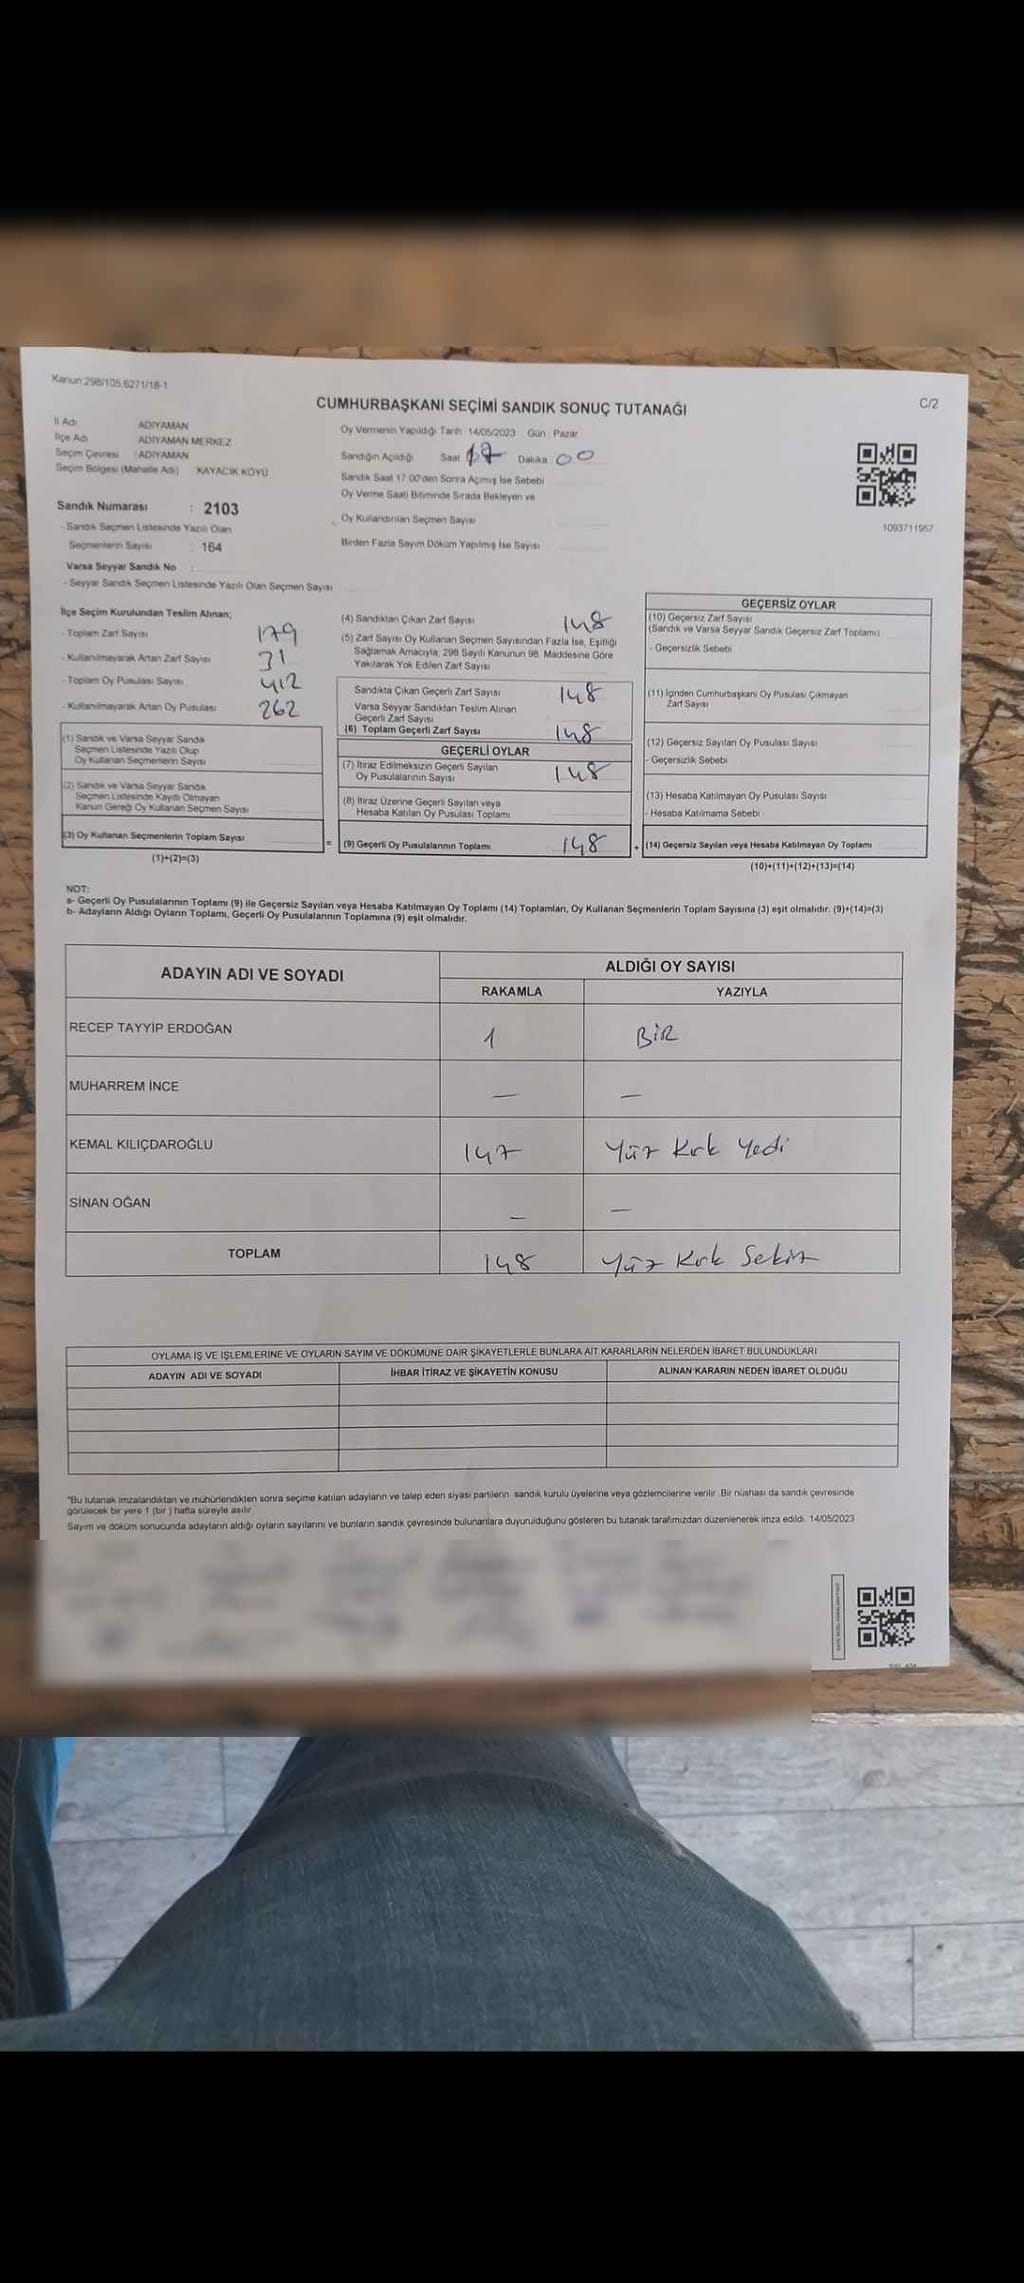 Kanun:298/105,6271/18-1
C/2
CUMHURBAŞKANI SEÇİMİ SANDIK SONUÇ TUTANAĞI
İl Adı ADIYAMAN
İlçe Adı ADIYAMAN MERKEZ
Seçim Çevresi : ADIYAMAN
Seçim Bölgesi (Mahalle Adı) KAYACIK KÖYÜ
Sandık Numarası : 2103
- Sandık Seçmen Listesinde Yazılı Olan
Seçmenlerin Sayısı : 164
Varsa Seyyar Sandık No :
- Seyyar Sandık Seçmen Listesinde Yazılı Olan Seçmen Sayısı
Oy Vermenin Yapıldığı Tarih 14/05/2023 Gün Pazar
Sandığın Açıldığı Saat 17 Dakika 00
Sandık Saat 17.00'den Sonra Açılmış İse Sebebi
Oy Verme Saati Bitiminde Sırada Bekleyen ve
Oy Kullandırılan Seçmen Sayısı
Birden Fazla Sayım Döküm Yapılmış İse Sayısı
1093711957
İlçe Seçim Kurulundan Teslim Alınan;
- Toplam Zarf Sayısı 179
- Kullanılmayarak Artan Zarf Sayısı 31
- Toplam Oy Pusulası Sayısı 412
- Kullanılmayarak Artan Oy Pusulası 262
(1) Sandık ve Varsa Seyyar Sandık
Seçmen Listesinde Yazılı Olup
Oy Kullanan Seçmenlerin Sayısı
(2) Sandık ve Varsa Seyyar Sandık
Seçmen Listesinde Kayıtlı Olmayan
Kanun Gereği Oy Kullanan Seçmen Sayısı
(3) Oy Kullanan Seçmenlerin Toplam Sayısı
(1)+(2)=(3)
=
(4) Sandıktan Çıkan Zarf Sayısı 148
(5) Zarf Sayısı Oy Kullanan Seçmen Sayısından Fazla İse, Eşitliği
Sağlamak Amacıyla, 298 Sayılı Kanunun 98. Maddesine Göre
Yakılarak Yok Edilen Zarf Sayısı
Sandıkta Çıkan Geçerli Zarf Sayısı 148
Varsa Seyyar Sandıktan Teslim Alınan
Geçerli Zarf Sayısı
(6) Toplam Geçerli Zarf Sayısı 148
GEÇERLİ OYLAR
(7) İtiraz Edilmeksizin Geçerli Sayılan
Oy Pusulalarının Sayısı 148
(8) İtiraz Üzerine Geçerli Sayılan veya
Hesaba Katılan Oy Pusulası Toplamı
(9) Geçerli Oy Pusulalarının Toplamı 148
+
GEÇERSİZ OYLAR
(10) Geçersiz Zarf Sayısı
(Sandık ve Varsa Seyyar Sandık Geçersiz Zarf Toplamı)
- Geçersizlik Sebebi
(11) İçinden Cumhurbaşkanı Oy Pusulası Çıkmayan
Zarf Sayısı
(12) Geçersiz Sayılan Oy Pusulası Sayısı
- Geçersizlik Sebebi
(13) Hesaba Katılmayan Oy Pusulası Sayısı
- Hesaba Katılmama Sebebi
(14) Geçersiz Sayılan veya Hesaba Katılmayan Oy Toplamı
(10)+(11)+(12)+(13)=(14)
NOT:
a- Geçerli Oy Pusulalarının Toplamı (9) ile Geçersiz Sayılan veya Hesaba Katılmayan Oy Toplamı (14) Toplamları, Oy Kullanan Seçmenlerin Toplam Sayısına (3) eşit olmalıdır. (9)+(14)=(3)
b- Adayların Aldığı Oyların Toplamı, Geçerli Oy Pusulalarının Toplamına (9) eşit olmalıdır.
ADAYIN ADI VE SOYADI ALDIĞI OY SAYISI
RAKAMLA YAZIYLA
RECEP TAYYİP ERDOĞAN 1 BİR
MUHARREM İNCE — —
KEMAL KILIÇDAROĞLU 147 Yüz Kırk Yedi
SİNAN OĞAN — —
TOPLAM 148 Yüz Kırk Sekiz
OYLAMA İŞ VE İŞLEMLERİNE VE OYLARIN SAYIM VE DÖKÜMÜNE DAİR ŞİKAYETLERLE BUNLARA AİT KARARLARIN NELERDEN İBARET BULUNDUKLARI
ADAYIN ADI VE SOYADI İHBAR İTİRAZ VE ŞİKAYETİN KONUSU ALINAN KARARIN NEDEN İBARET OLDUĞU
"Bu tutanak imzalandıktan ve mühürlendikten sonra seçime katılan adayların ve talep eden siyasi partilerin sandık kurulu üyelerine veya gözlemcilerine verilir. Bir nüshası da sandık çevresinde
görülecek bir yere 1 (bir) hafta süreyle asılır.
Sayım ve döküm sonucunda adayların aldığı oyların sayılarını ve bunların sandık çevresinde bulunanlara duyurulduğunu gösteren bu tutanak tarafımızdan düzenlenerek imza edildi. 14/05/2023